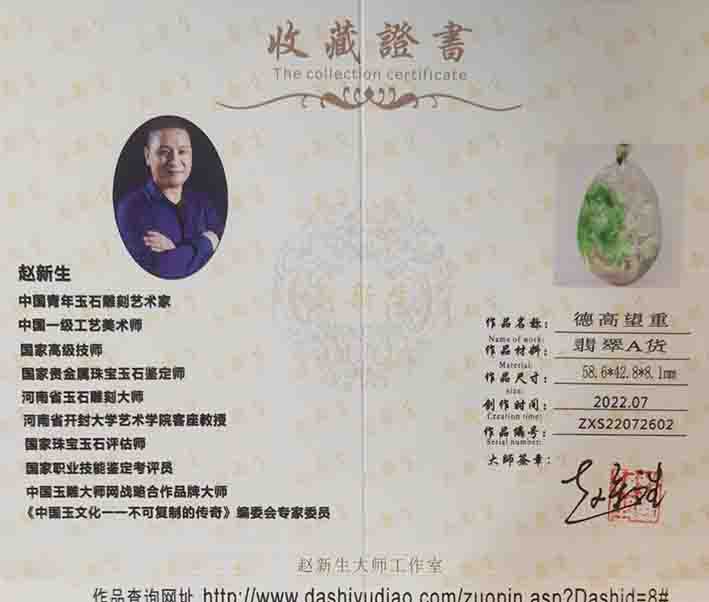 收藏證書
The collection certificate
赵新生
中国青年玉石雕刻艺术家
中国一级工艺美术师
国家高级技师
国家贵金属珠宝玉石鉴定师
河南省玉石雕刻大师
河南省开封大学艺术学院客座教授
国家珠宝玉石评估师
国家职业技能鉴定考评员
中国玉雕大师网战略合作品牌大师
《中国玉文化一一不可复制的传奇》编委会专家委员
作品名称: 德高望重
Name of work:
作品材料: 翡翠A货
Material:
作品尺寸: 58.6*42.8*8.1mm
size:
创作时间: 2022.07
Creation time:
作品编号: ZXS22072602
Serial number:
大师签章:
赵新生大师工作室
作品查询网址 http://www.dashiyudiao.com/zuopin.asp?Dashid=8#